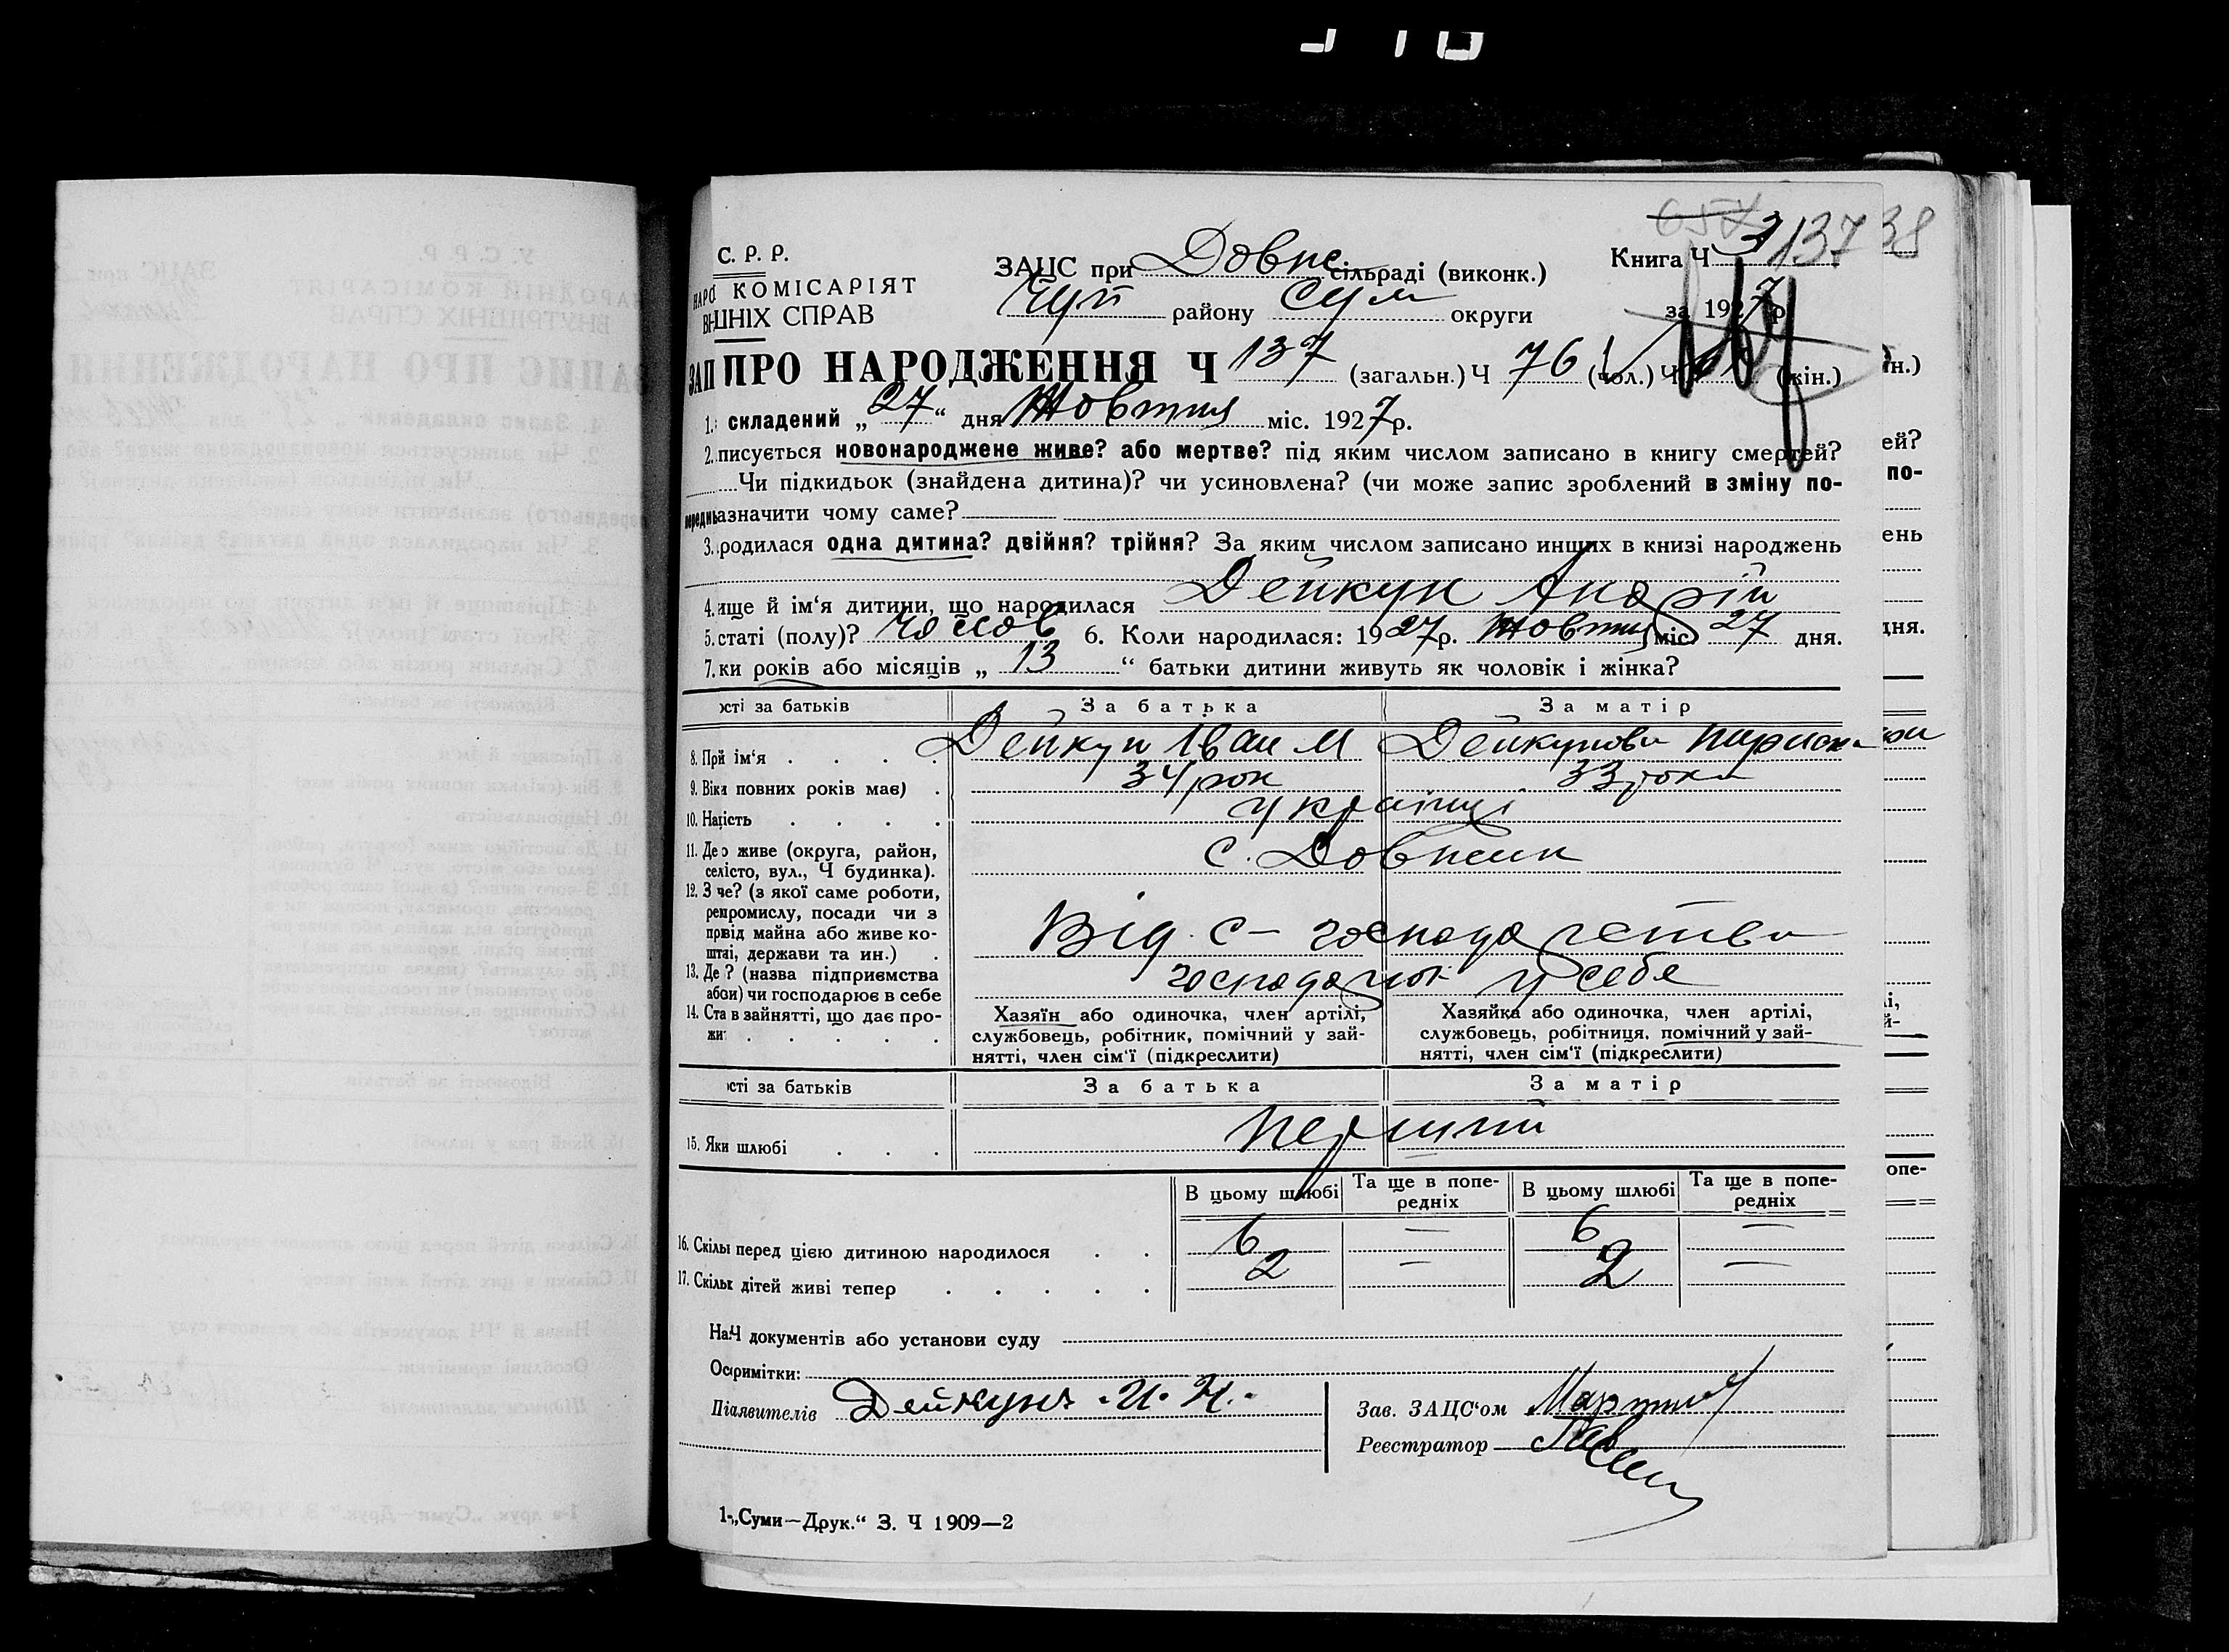 С. Р. Р.
НАРО КОМІСАРІЯТ
ВНШНІХ СПРАВ
ЗАЦС при Довж сільраді (виконк.)
Чуп району Сум округи
Книга Ч 3 137 38
за 1927 р.
ЗАП ПРО НАРОДЖЕННЯ Ч 137 (загальн.) Ч 76 (чол.) Ч (жін.)
1. складений „27“ дня Жовтня міс. 1927 р.
2. писується новонароджене живе? або мертве? під яким числом записано в книгу смертей?
Чи підкидьок (знайдена дитина)? чи усиновлена? (чи може запис зроблений в зміну по-
передньазначити чому саме?
3. родилася одна дитина? двійня? трійня? За яким числом записано инших в книзі народжень
4. ище й ім'я дитини, що народилася Дейкун Андрій
5. статі (полу)? Чолов 6. Коли народилася: 1927 р. Жовтня міс. 27 дня.
7. ки років або місяців „13“ батьки дитини живуть як чоловік і жінка?
ості за батьків За батька За матір
8. Прй ім'я Дейкун Іван М Дейкунова Параска
9. Віка повних років має) 34 рок 33 роки
10. Наість українці
11. Де о живе (округа, район, с. Довжик
селісто, вул., Ч будинка).
12. З че? (з якої саме роботи,
ремпромислу, посади чи з
првід майна або живе ко-
штаі, держави та ин.) Від с- господарства
13. Де ? (назва підприємства
абови) чи господарює в себе господарює у себе
14. Ста в зайнятті, що дає про-
жи
Хазяїн або одиночка, член артілі,
службовець, робітник, помічний у зай-
нятті, член сім'ї (підкреслити)
Хазяйка або одиночка, член артілі,
службовець, робітниця, помічний у зай-
нятті, член сім'ї (підкреслити)
ості за батьків За батька За матір
15. Яки шлюбі Перший
В цьому шлюбі Та ще в попе- В цьому шлюбі Та ще в попе-
редніх редніх
16. Скільк перед цією дитиною народилося 6 — 6 —
17. Скільк дітей живі тепер 2 — 2 —
НаЧ документів або установи суду
Осримітки:
Піаявителів Дейкунъ И. Н.
Зав. ЗАЦС'ом
Реєстратор
1-„Суми—Друк.“ З. Ч 1909—2